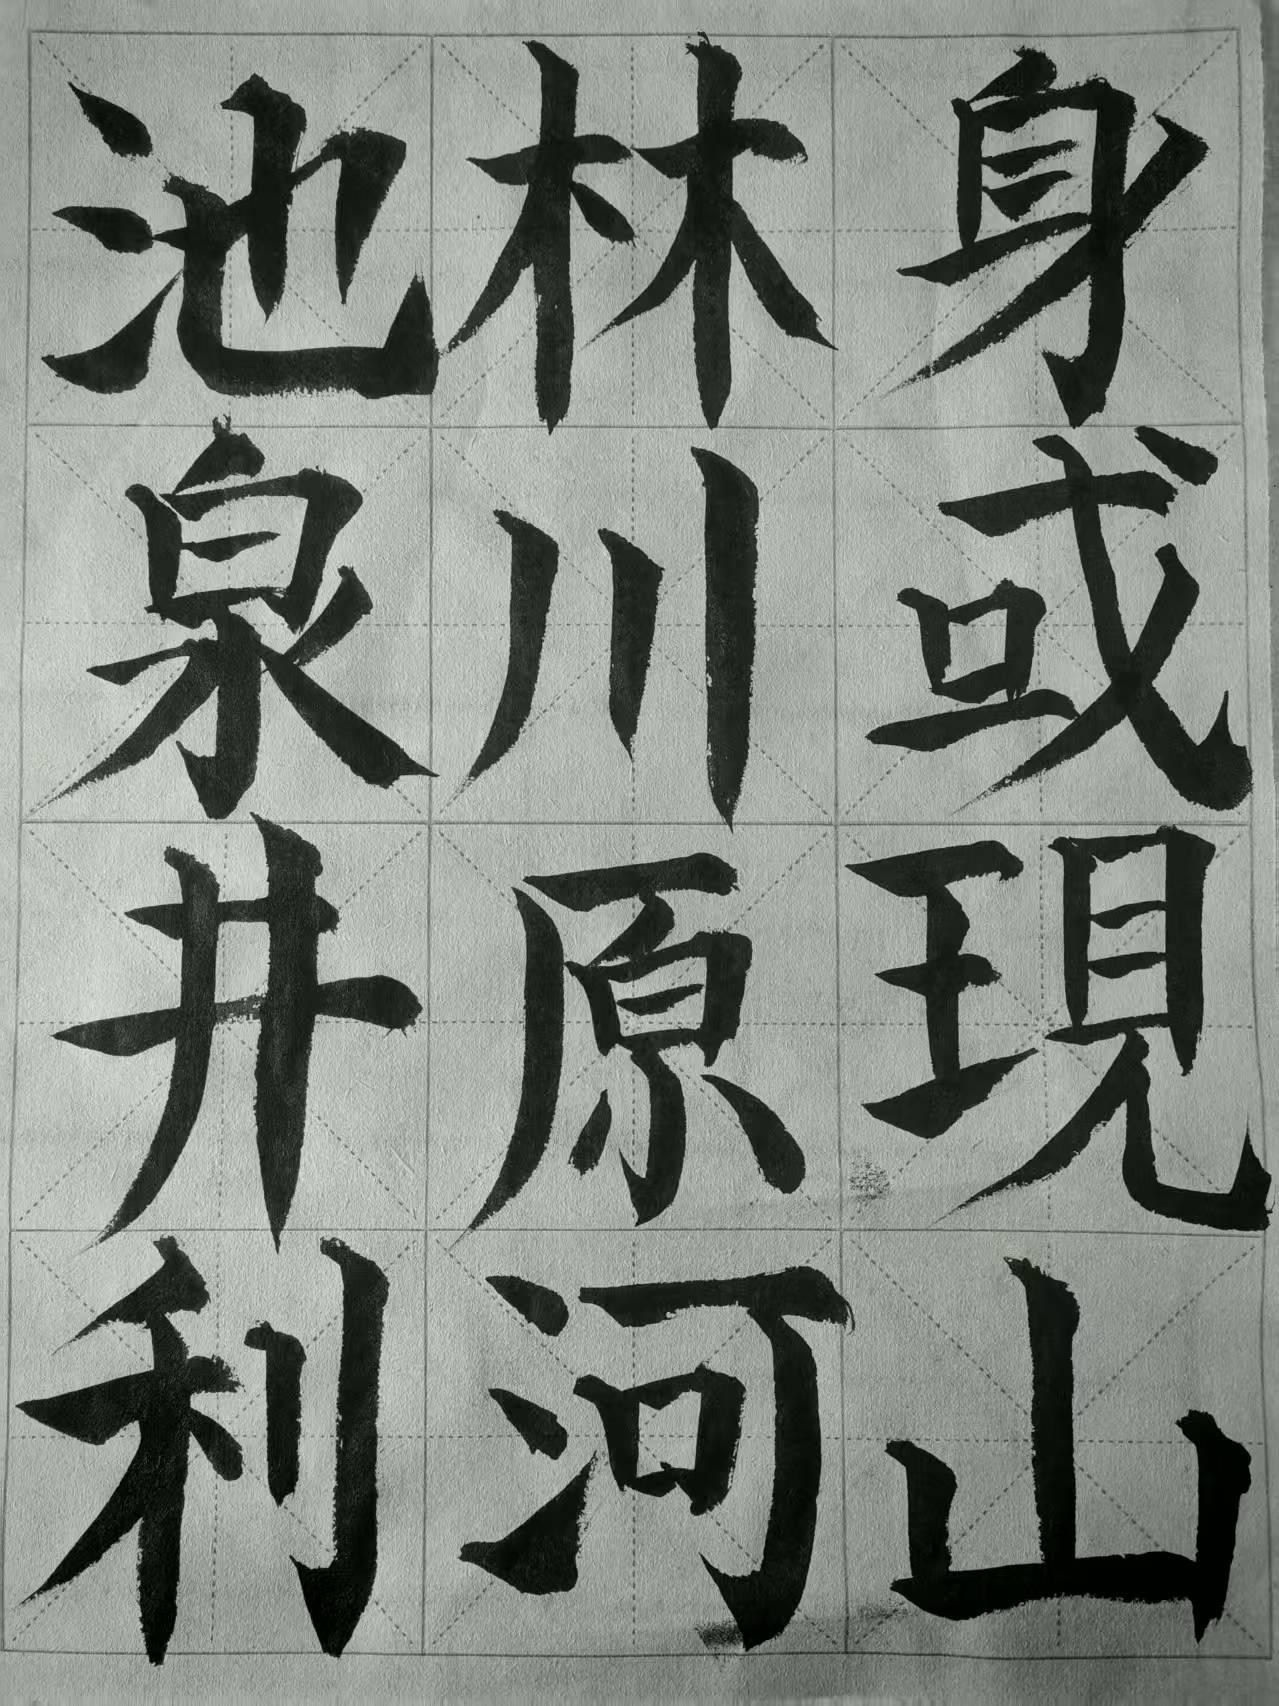 身或現山
林川原河
池泉井利